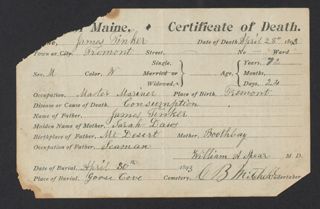 of Maine, Certificate of Death.
James Tinker Date of Death, April 28th 1893
Town or City, Tremont Street, No Ward
Single, Years, 70
Sex, M Color, W Married or Age, Months,
Widowed, Days, 24
Occupation, Master Mariner Place of Birth, Tremont
Disease or Cause of Death, Consumption
Name of Father, James Tinker
Maiden Name of Mother, Sarah
Birthplace of Father, Mt Desert Mother, Boothbay
Occupation of Father, Seaman
William A Spear M D.
Date of Burial, April 30th 1893
Place of Burial, Goose Cove Cemetery, C B Undertaker